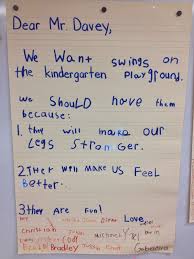 Dear Mr. Davey,
We Want swings on
the kindergarten Playground.
we Should have them
because:
1. they will make our
Legs Stronger.
2. They will make us Feel
Better.
3. They Are Fun!
Love,
Christian
Bradley
Gabriella